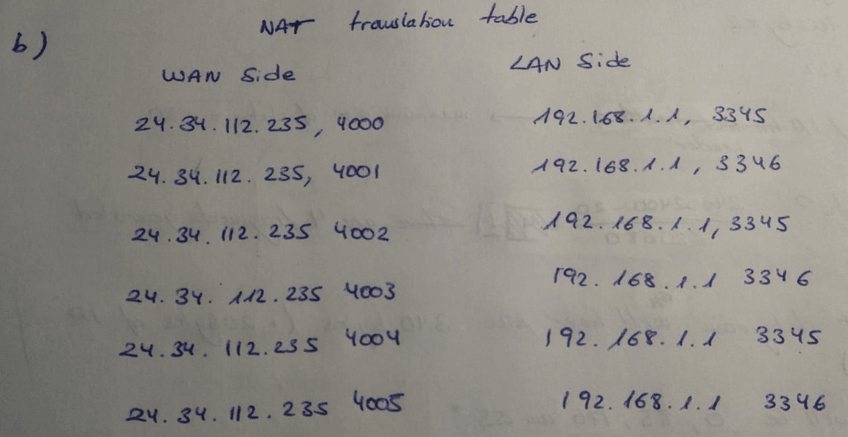 b) NAT translation table
WAN Side LAN Side
24.34.112.235, 4000 192.168.1.1, 3345
24.34.112.235, 4001 192.168.1.1, 3346
24.34.112.235 4002 192.168.1.1, 3345
24.34.112.235 4003 192.168.1.1 3346
24.34.112.235 4004 192.168.1.1 3345
24.34.112.235 4005 192.168.1.1 3346